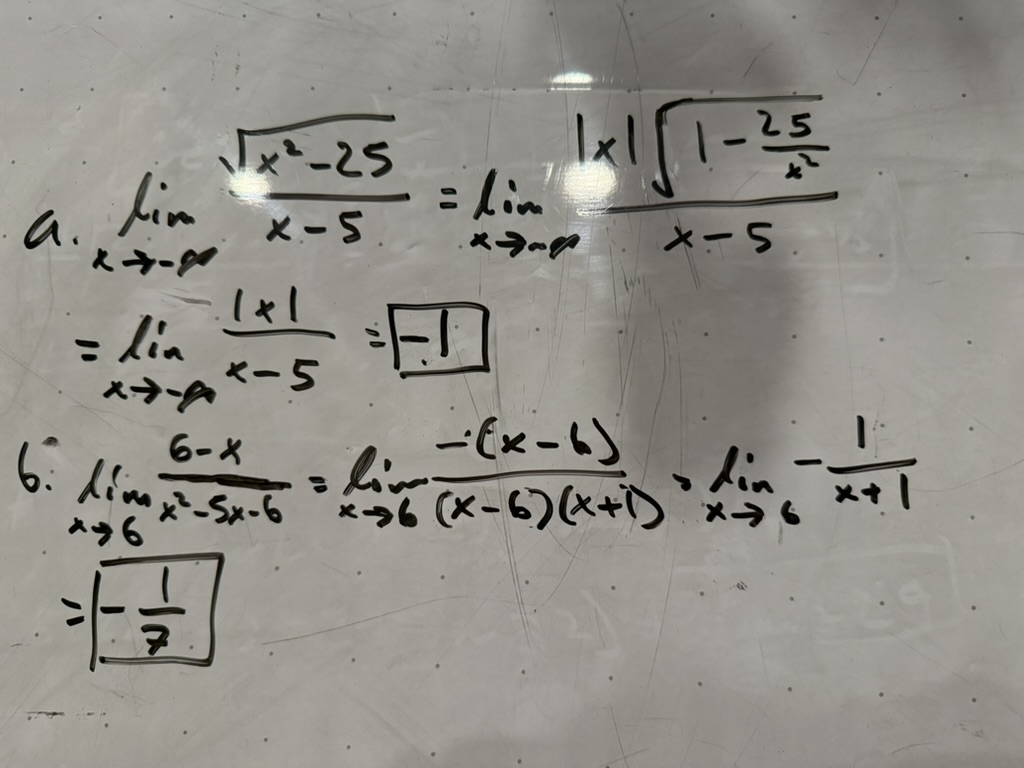 a. lim x→-∞ √(x²-25)/(x-5) = lim x→-∞ |x|√(1-25/x²)/(x-5)
= lim x→-∞ |x|/(x-5) = -1
b. lim x→6 (6-x)/(x²-5x-6) = lim x→6 -(x-6)/((x-6)(x+1)) = lim x→6 -1/(x+1)
= -1/7